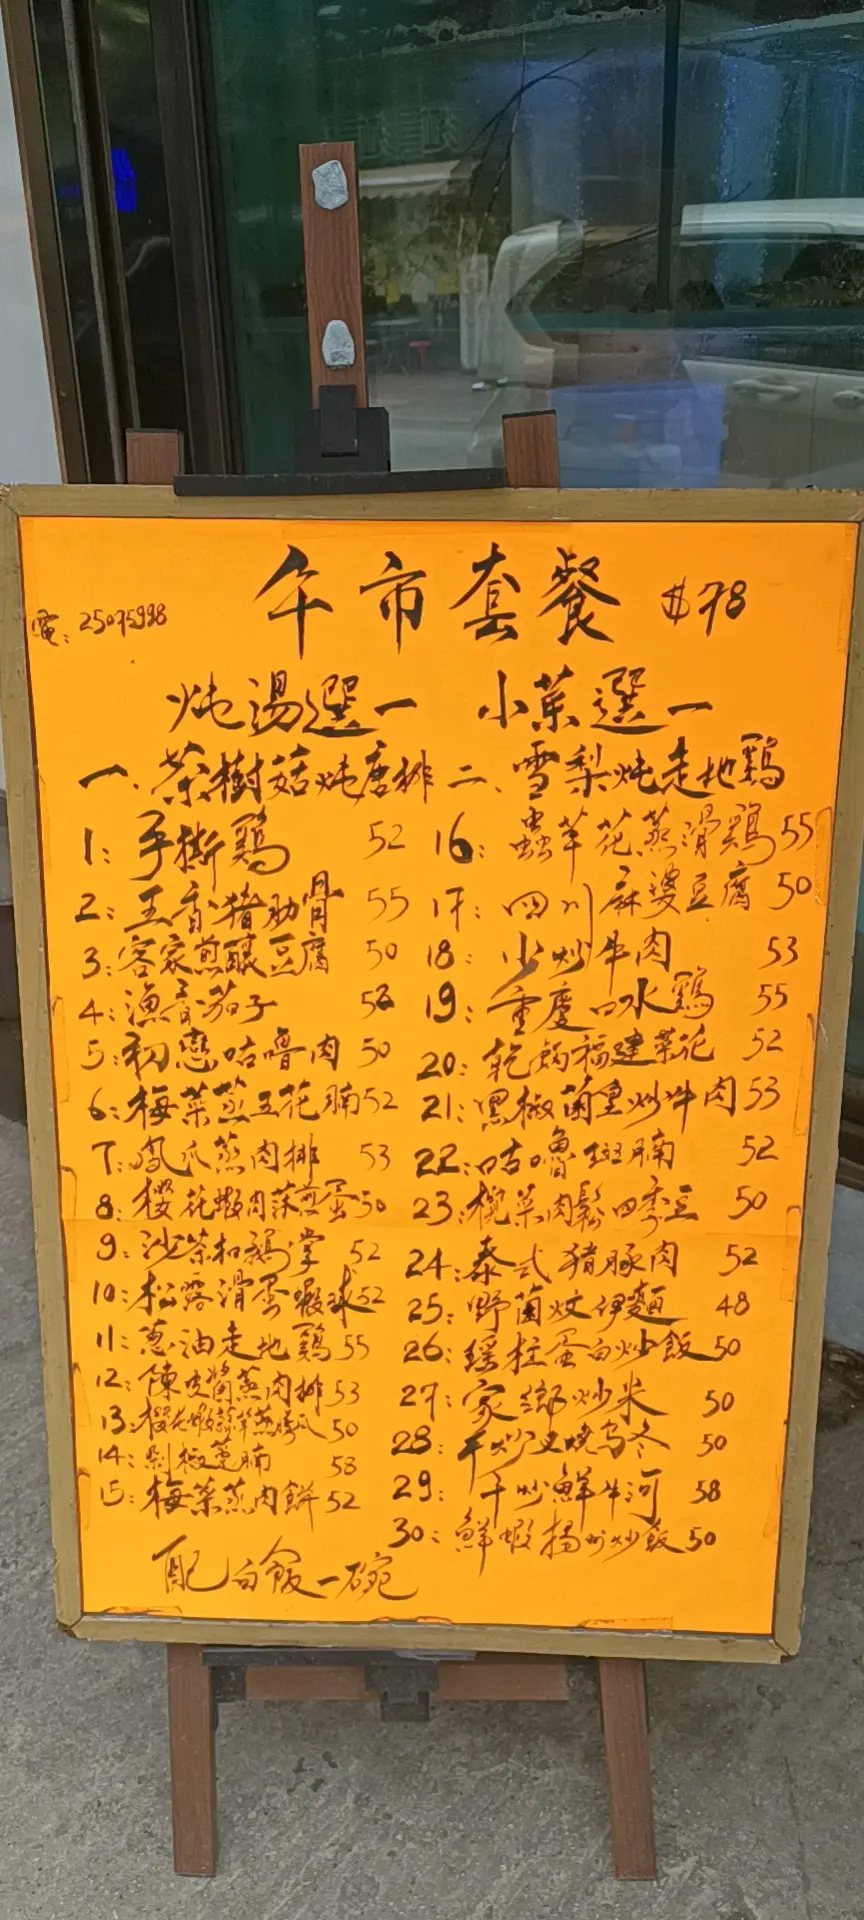 午市套餐 $78
電: 25075998
炖湯選一 小菜選一
一、茶樹菇炖唐排 二、雪梨炖走地鷄
1: 手撕鷄 52
2: 五香猪肋骨 55
3: 客家煎釀豆腐 50
4: 漁香茄子 52
5: 初戀咕嚕肉 50
6: 梅菜蒸五花腩 52
7: 鳳爪蒸肉排 53
8: 櫻花蝦肉菜煎蛋 50
9: 沙茶扣鵝掌 52
10: 松露滑蛋蝦球 52
11: 蔥油走地鷄 55
12: 陳皮醬蒸肉排 53
13: 櫻花蝦蒜蓉蒸勝瓜 50
14: 剁椒腩 58
15: 梅菜蒸肉餅 52
16: 蟲草花蒸滑鷄 55
17: 四川麻婆豆腐 50
18: 小炒牛肉 53
19: 重慶口水鷄 55
20: 乾鍋福建菜花 52
21: 黑椒菌皇炒牛肉 53
22: 咕嚕斑腩 52
23: 欖菜肉鬆四季豆 50
24: 泰式猪豚肉 52
25: 野菌炆伊麵 48
26: 瑤柱蛋白炒飯 50
27: 家鄉炒米 50
28: 干炒叉燒烏冬 50
29: 干炒鮮牛河 58
30: 鮮蝦揚州炒飯 50
配白飯一碗